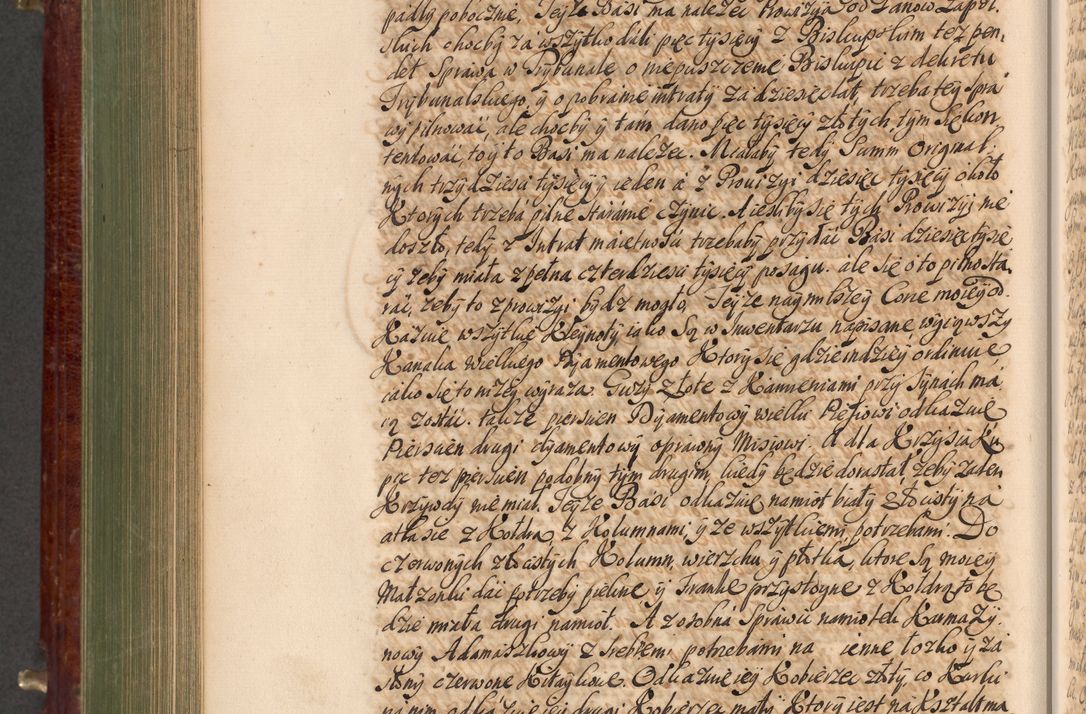 padły pobocznie, Teyże Basi ma należeć Prowizya od Panow Zapol,
skich choćby za wszytko dali pięć tysięcy z Biskupstwem też pen,
det sprawa w Trybunale o niepuszczenie Biskupic z dekretu
Trybunalskiego, y o pobranie intraty za dziesięć lat, trzeba tey spra
wy pilnować, ale choćby y tam dano pięc tysięcy złotych, tym się kon
tentować, to y to Basi ma należeć. Miałaby tedy Summ Original,
nych trzydzieści tysięcy y ieden á z Prowizyi dziesięć tysięcy około
Ktorych trzebá pilne stáránie czynić. A iesliby się tych Prowizyi nie
doszło, tedy z Intrat maiętnosci trzebaby przydać Basi dziesięć tysię
cy żeby miała zpełna czterdzieści tysięcy posagu. ale się o to pilno stá,
rać, żeby to z prowizyi bydz mogło, Teyże naymilszey Corce moiey od,
Kazuie wszytkie Kleynoty iako są w Inwentarzu napisane wyiąwszy
Kanaka wielkiego Dyamentowego Ktory się gdzieindziey ordinuie
iako się to niżey wyraża. Guzy złote z Kamieniami przy synach má,
ią zostáć. także piersćien Dyjamentowy wielki Piesiowi odkazuie
Piersćien drugi dyamentowy oprawny Misiowi. A dla Krzysia Ku
pić też piersćien podobny tym drugim, kiedy będzie dorastał, żeby żaden
Krzywdy nie miał. Teyże Basi odkazuię namiot biały złocisty na
atłasie z Kołdrą, z Kolumnami, y ze wszytkiemi potrzebami. Do
czerwonych złocistych Kolumn, wierzchu y płotka, ktore są moiey
Małżonki dać potrzeby piękne y Franke przystoyne z Kołdrą to bę
dzie miała drugi namiot. A z osobna sprawić namiotek Karmazy,
nowy Adamaszkowy z srebrem potrzebami na ienne łożko y zá
słony czerwone Kitaykowe. Odkazuię iey Kobierzec złoty, co Karki
na nim, odkazuię iey drugi Kobierzec máły, Ktory iest na Kształt ma